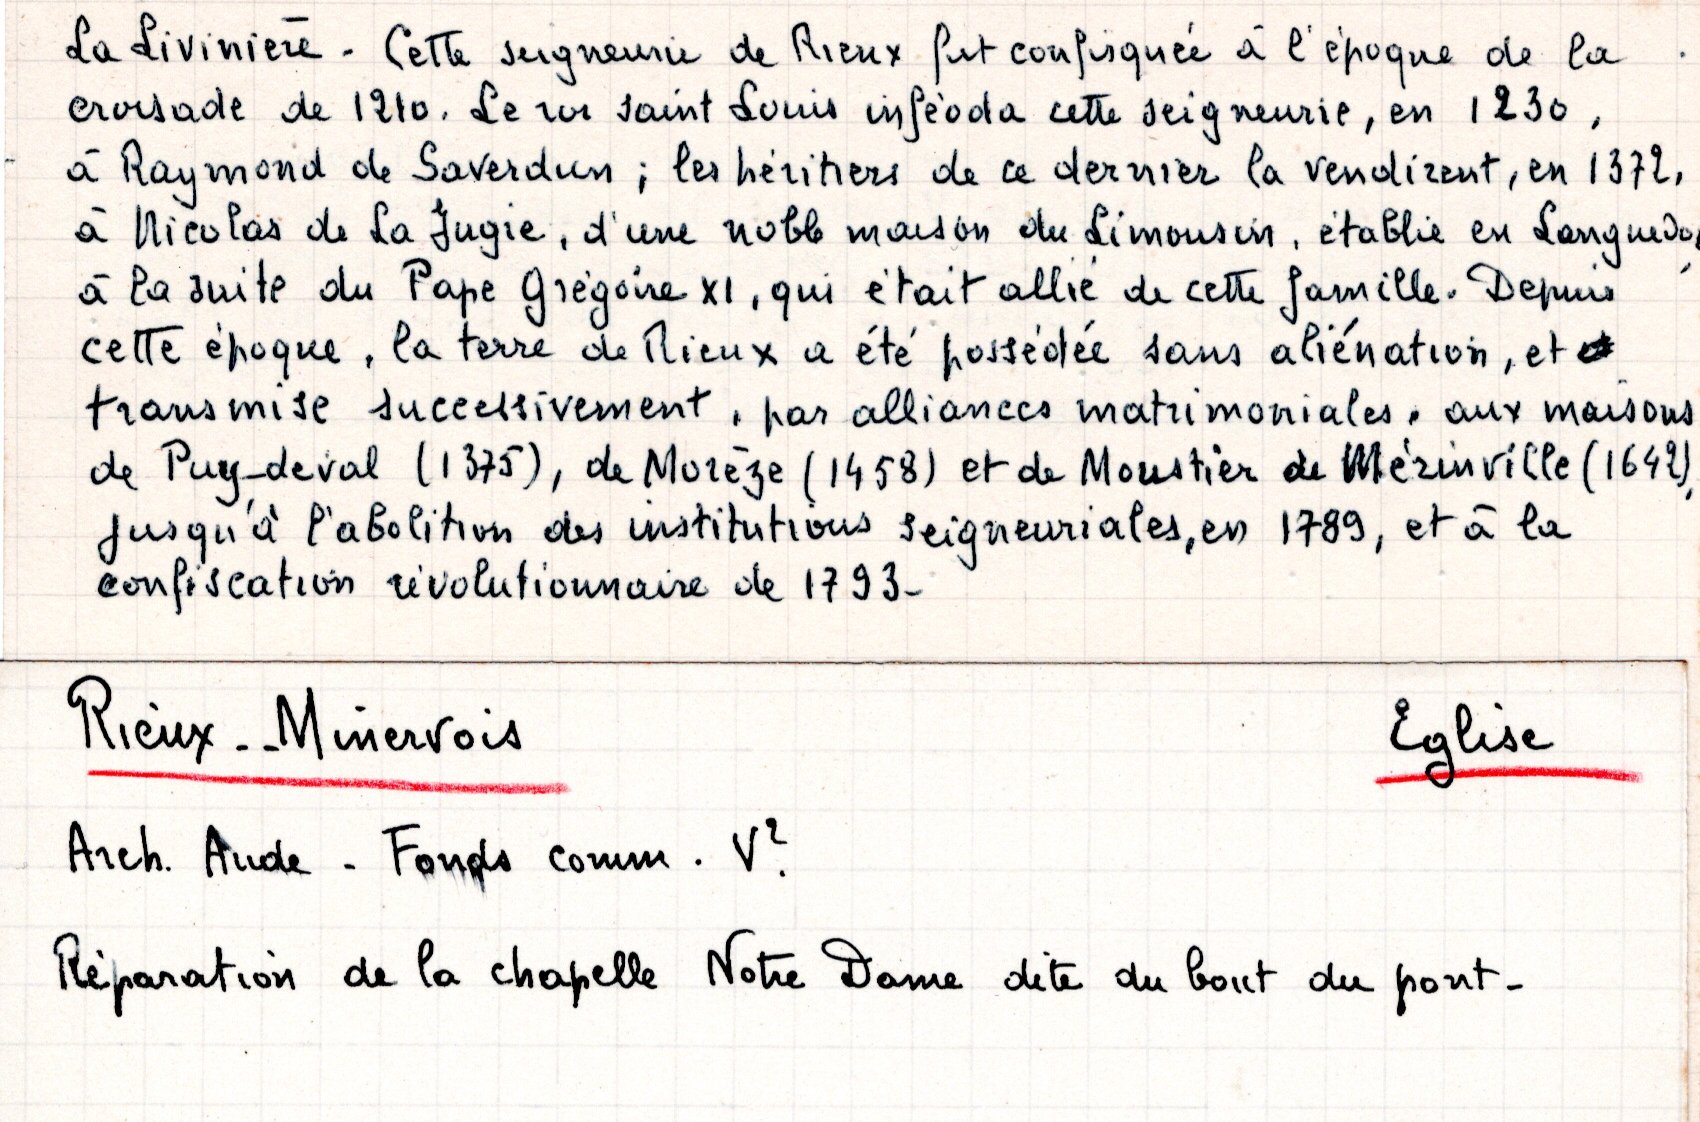 La Livinière - Cette seigneurie de Rieux fut confisquée à l'époque de la
croisade de 1210. Le roi saint Louis inféoda cette seigneurie, en 1230,
à Raymond de Saverdun ; les héritiers de ce dernier la vendirent, en 1372,
à Nicolas de La Jugie, d'une noble maison du Limousin, établie en Languedo
à la suite du Pape Grégoire XI, qui était allié de cette famille. Depuis
cette époque, la terre de Rieux a été possédée sans aliénation, et
transmise successivement, par alliances matrimoniales, aux maisons
de Puy-deval (1375), de Morèze (1458) et de Moustier de Mérinville (1642),
jusqu'à l'abolition des institutions seigneuriales, en 1789, et à la
confiscation révolutionnaire de 1793-
Rieux--Minervois
Eglise
Arch. Aude - Fonds comm. V?
Réparation de la chapelle Notre Dame dite du bout du pont-